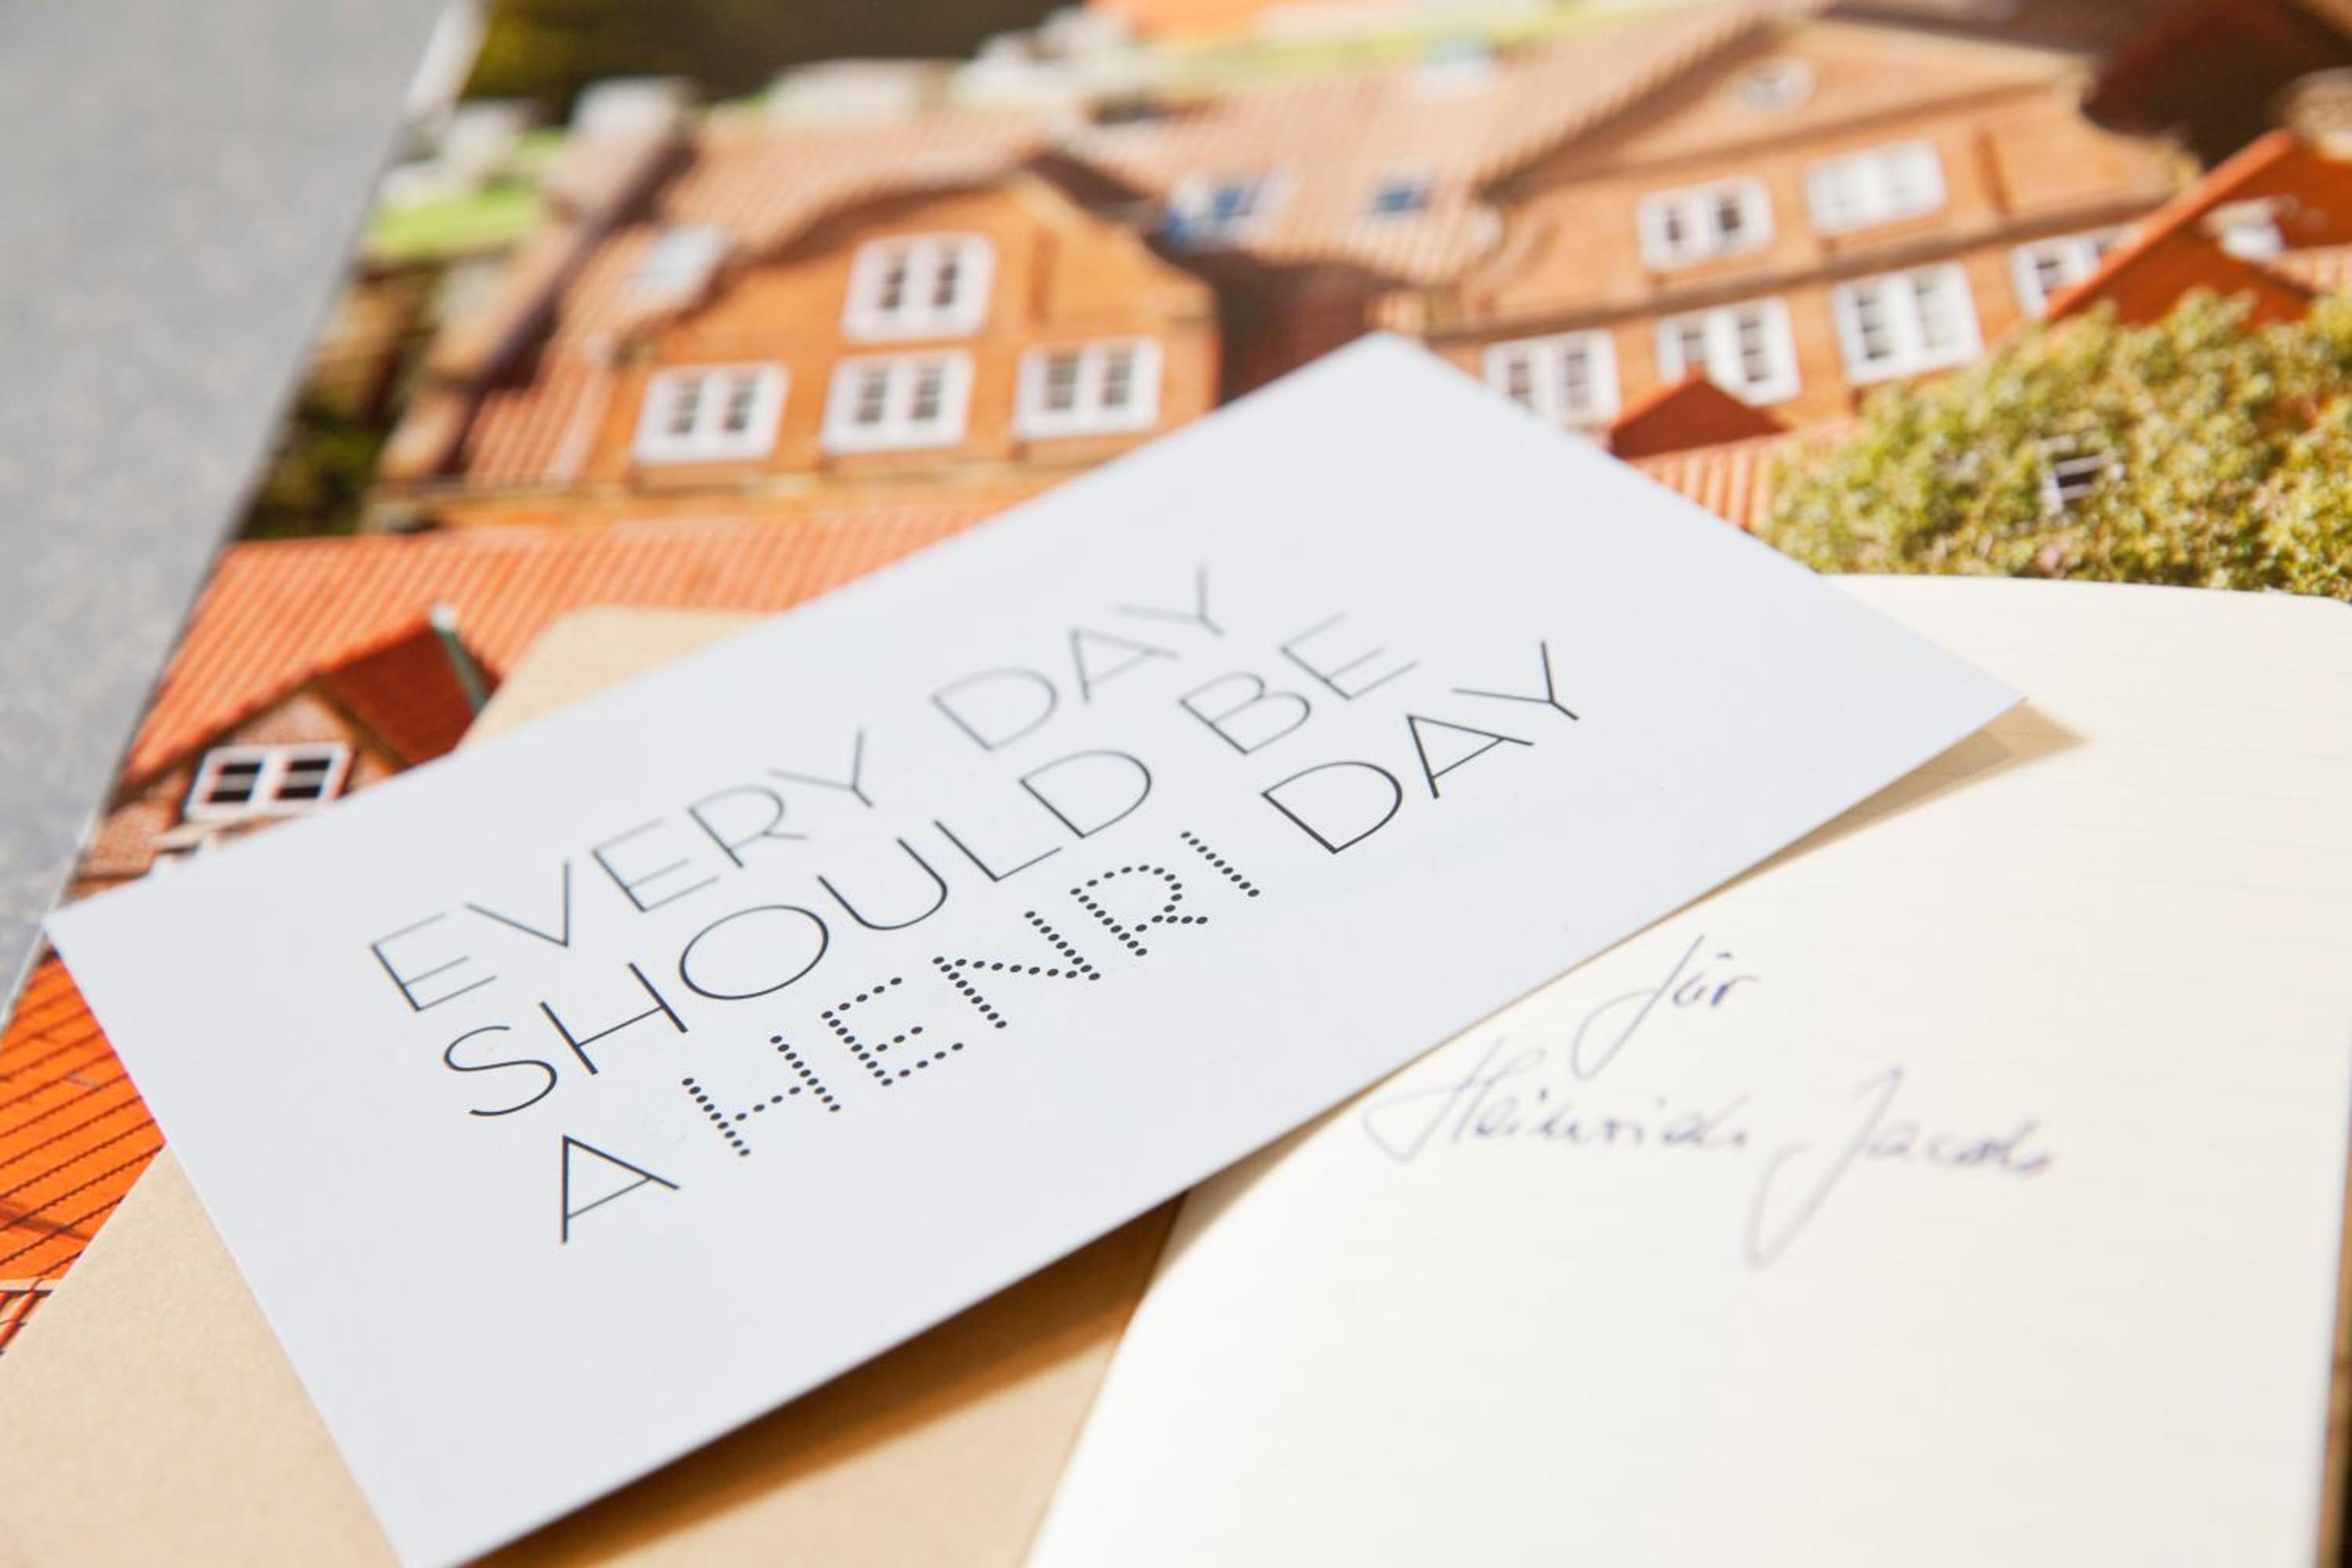 EVERY DAY
SHOULD BE
A HENRI DAY
für
Heinrich Jacobs